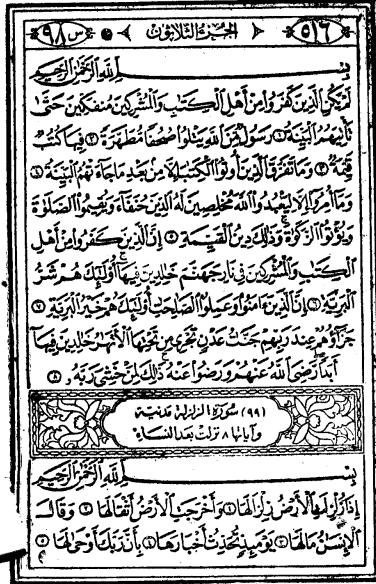 س ٩٨ الجزء الثلاثون ٥١٦
بِسْمِ اللَّهِ الرَّحْمَٰنِ الرَّحِيمِ
لَمْ يَكُنِ الَّذِينَ كَفَرُوا مِنْ أَهْلِ الْكِتَابِ وَالْمُشْرِكِينَ مُنْفَكِّينَ حَتَّىٰ
تَأْتِيَهُمُ الْبَيِّنَةُ ١ رَسُولٌ مِنَ اللَّهِ يَتْلُو صُحُفًا مُطَهَّرَةً ٢ فِيهَا كُتُبٌ
قَيِّمَةٌ ٣ وَمَا تَفَرَّقَ الَّذِينَ أُوتُوا الْكِتَابَ إِلَّا مِنْ بَعْدِ مَا جَاءَتْهُمُ الْبَيِّنَةُ ٤
وَمَا أُمِرُوا إِلَّا لِيَعْبُدُوا اللَّهَ مُخْلِصِينَ لَهُ الدِّينَ حُنَفَاءَ وَيُقِيمُوا الصَّلَوٰةَ
وَيُؤْتُوا الزَّكَوٰةَ وَذَٰلِكَ دِينُ الْقَيِّمَةِ ٥ إِنَّ الَّذِينَ كَفَرُوا مِنْ أَهْلِ
الْكِتَابِ وَالْمُشْرِكِينَ فِي نَارِ جَهَنَّمَ خَالِدِينَ فِيهَا أُولَٰئِكَ هُمْ شَرُّ
الْبَرِيَّةِ ٦ إِنَّ الَّذِينَ آمَنُوا وَعَمِلُوا الصَّالِحَاتِ أُولَٰئِكَ هُمْ خَيْرُ الْبَرِيَّةِ ٧
جَزَاؤُهُمْ عِنْدَ رَبِّهِمْ جَنَّاتُ عَدْنٍ تَجْرِي مِنْ تَحْتِهَا الْأَنْهَارُ خَالِدِينَ فِيهَا
أَبَدًا رَضِيَ اللَّهُ عَنْهُمْ وَرَضُوا عَنْهُ ذَٰلِكَ لِمَنْ خَشِيَ رَبَّهُ ٨
(٩٩) سورة الزلزلة مدنية
وآياتها ٨ نزلت بعد النساء
بِسْمِ اللَّهِ الرَّحْمَٰنِ الرَّحِيمِ
إِذَا زُلْزِلَتِ الْأَرْضُ زِلْزَالَهَا ١ وَأَخْرَجَتِ الْأَرْضُ أَثْقَالَهَا ٢ وَقَالَ
الْإِنْسَانُ مَا لَهَا ٣ يَوْمَئِذٍ تُحَدِّثُ أَخْبَارَهَا ٤ بِأَنَّ رَبَّكَ أَوْحَىٰ لَهَا ٥